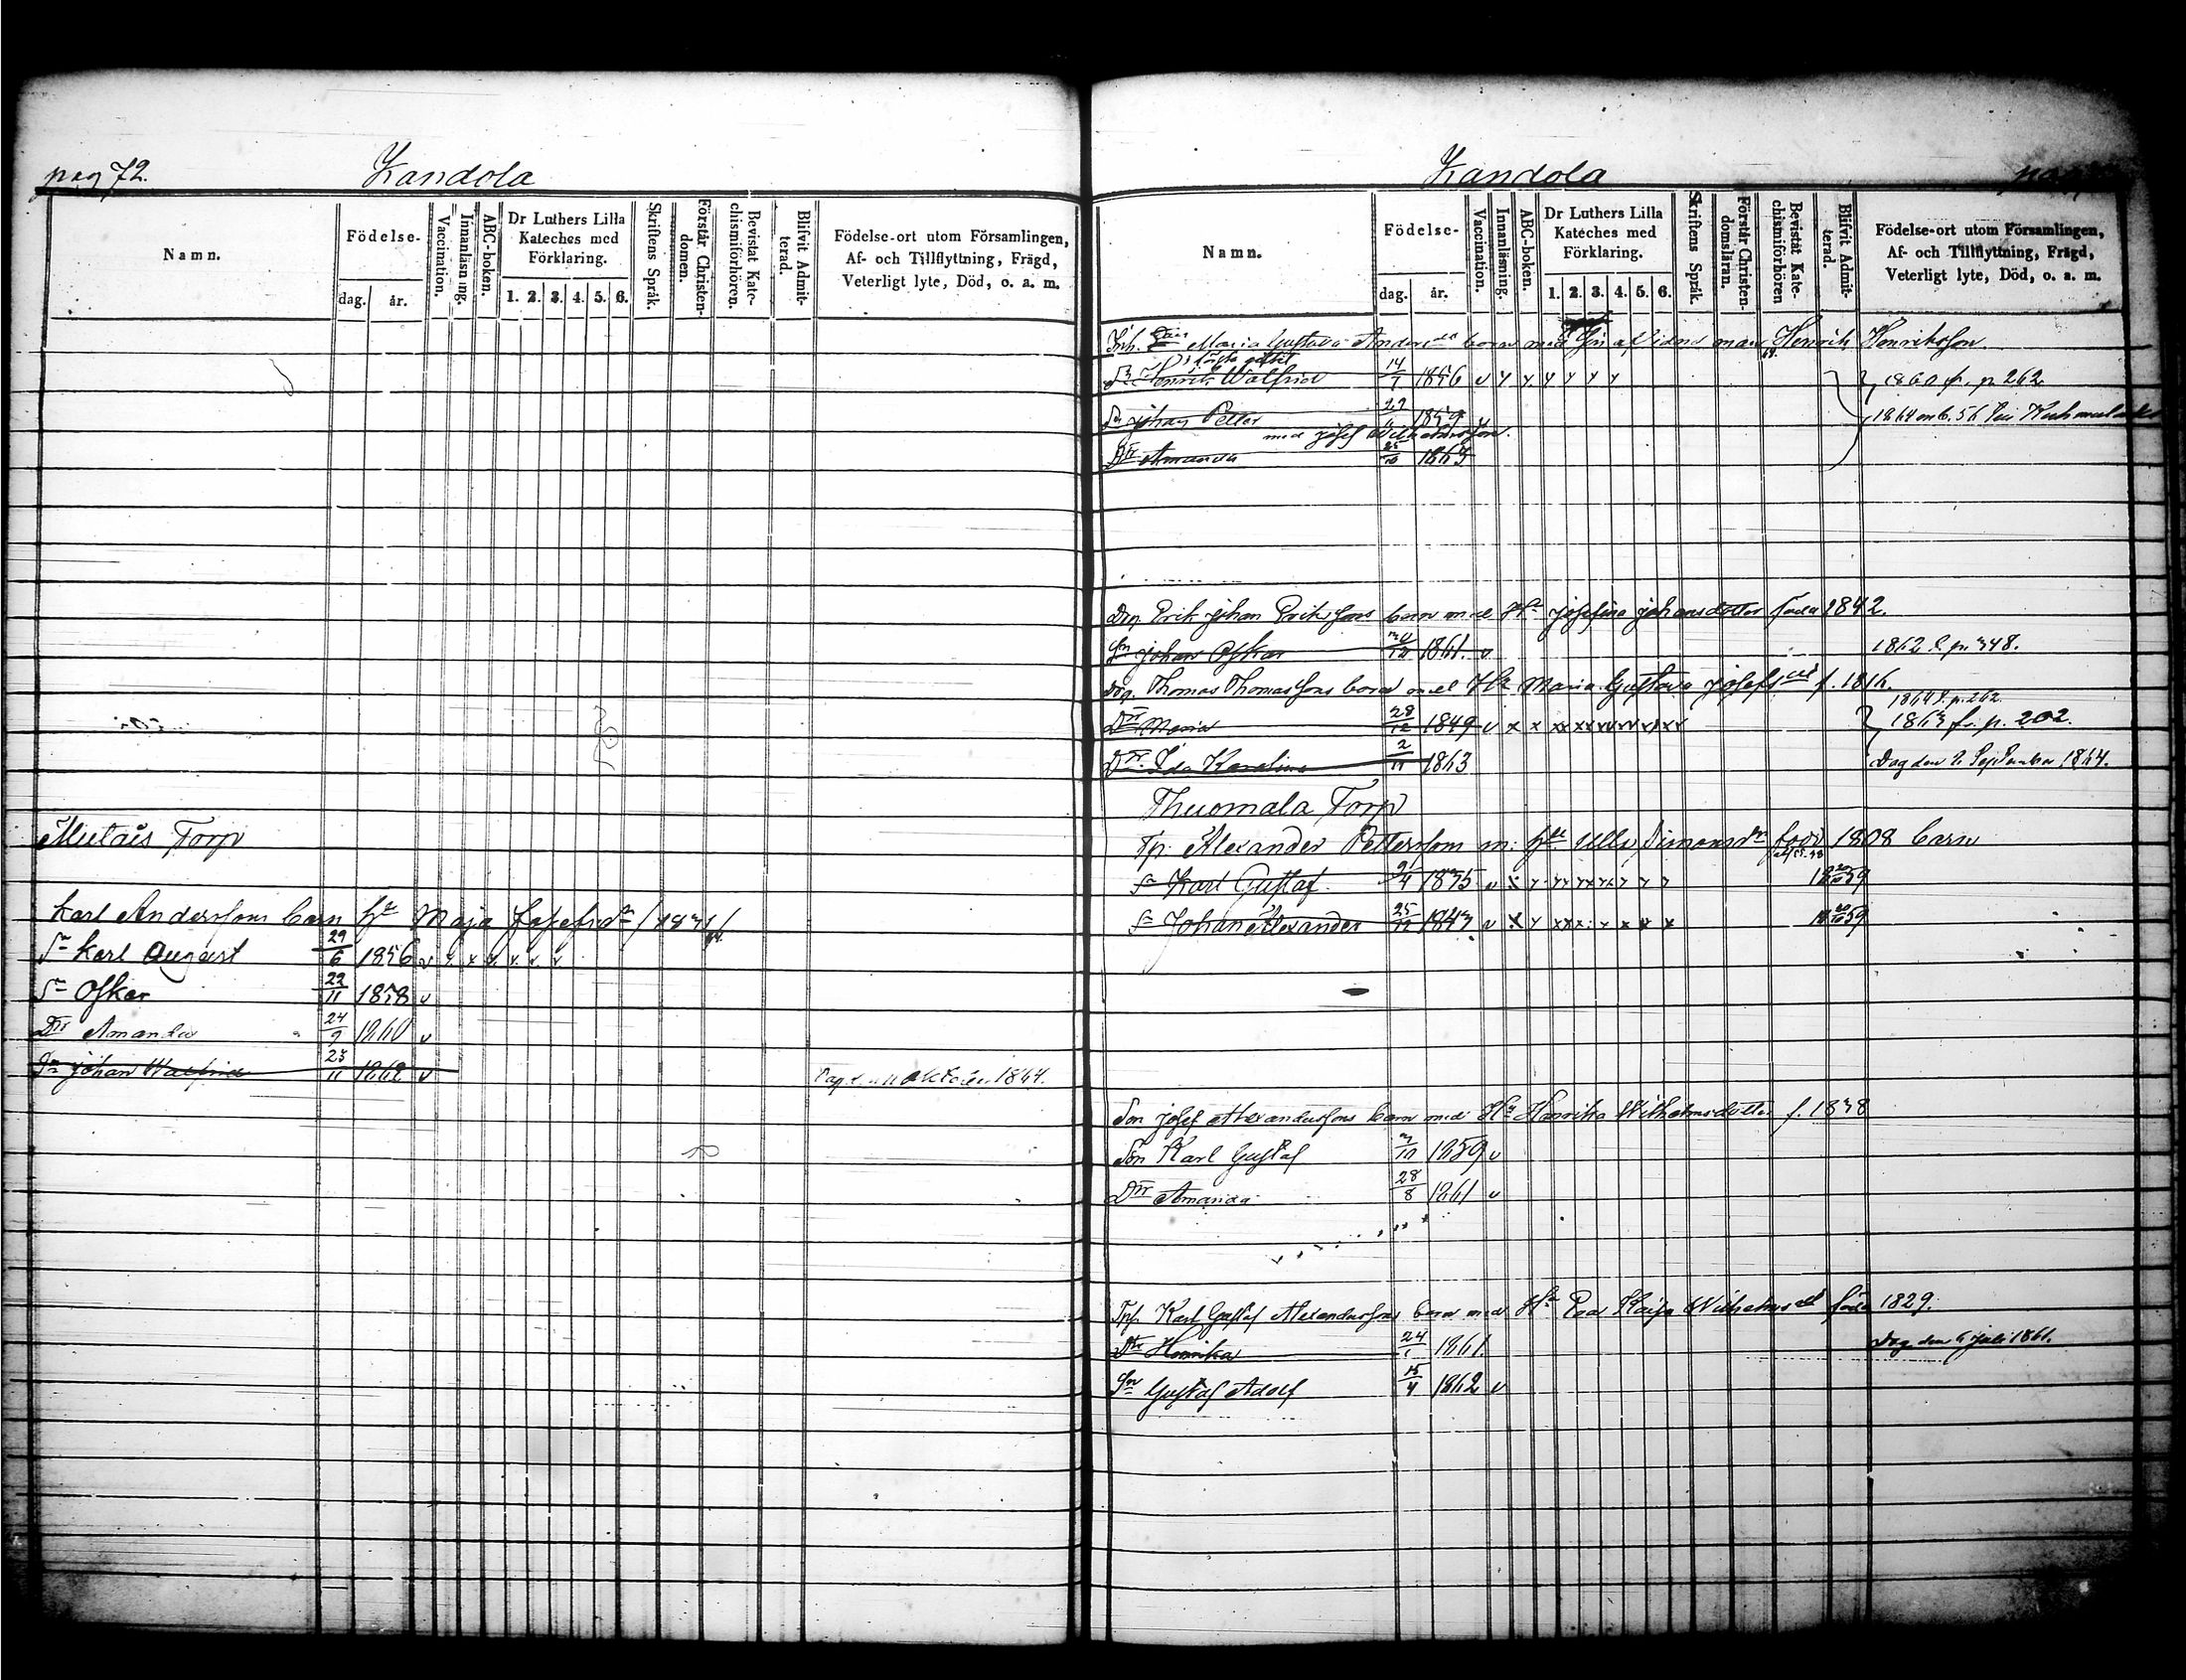 pag 72.
Zandola
Namn.
Födelse-
dag.
år.
Vaccination.
Innanläsning.
ABC-boken.
Dr Luthers Lilla Kateches med Förklaring.
1. 2. 3. 4. 5. 6.
Skriftens Språk.
Förstår Christendomen.
Bevistat Katechismiförhören.
Blifvit Admitterad.
Födelse-ort utom Församlingen,
Af- och Tillflyttning, Frägd,
Veterligt lyte, Död, o. a. m.
Torp
Karl Anderssons barn Hu Maja Josefsdr
Sn Karl August 29/6 1856 v
Sn Oskar 22/11 1858 v
Dtr Amanda 24/9 1860 v
Sn Johan Walfrid 23/11 1862 v Oktober 1864.
Zandola
Namn.
Födelse-
dag.
år.
Vaccination.
Innanläsning.
ABC-boken.
Dr Luthers Lilla Kateches med Förklaring.
1. 2. 3. 4. 5. 6.
Skriftens Språk.
Förstår Christendomsläran.
Bevistat Katechismiförhören
Blifvit Admitterad.
Födelse-ort utom Församlingen,
Af- och Tillflyttning, Frägd,
Veterligt lyte, Död, o. a. m.
Inh. Maria Gustava barn med sin aflidne man Henrik Henriksson
Sn Henrik Walfrid 14/7 1856 v 1860 fr. p. 262.
Sn Johan Petter 1859 v
med Josef Wilhelmsson.
Dtr Amanda 1863
Drg Erik Johan Erikssons barn med Hu Josefina Johansdotter född 1842.
Sn Johan Oskar 1861. v 1862 t. p. 348.
Drg. Thomas Thomassons barn med Hu Maria Gustava f. 1816.
1864 t. p. 262.
Dtr Maria 28/12 1849 v 1863 fr. p. 202.
Dtr Ida Karolina 2/11 1863 Dog den September 1864.
Thuomala Torp
Tp. Alexander Pettersson m: Hu Ulla Simonsdr född 1808 barn
Sn Karl Gustaf 1835 v
Sn Johan Alexander 25/12 1843 v
Son Josef Alexanderssons barn med Hu Henrika Wilhelmsdotter f. 1838
Son Karl Gustaf 1859 v
Dtr Amanda 28/8 1861 v
Tpf. Karl Gustaf Alexanderssons barn med Hu Eva Kaisa Wilhelmsd född 1829.
Dtr Henrika 24/1 1861 Dog den 6 Juli 1861.
Sn Gustaf Adolf 15/4 1862 v